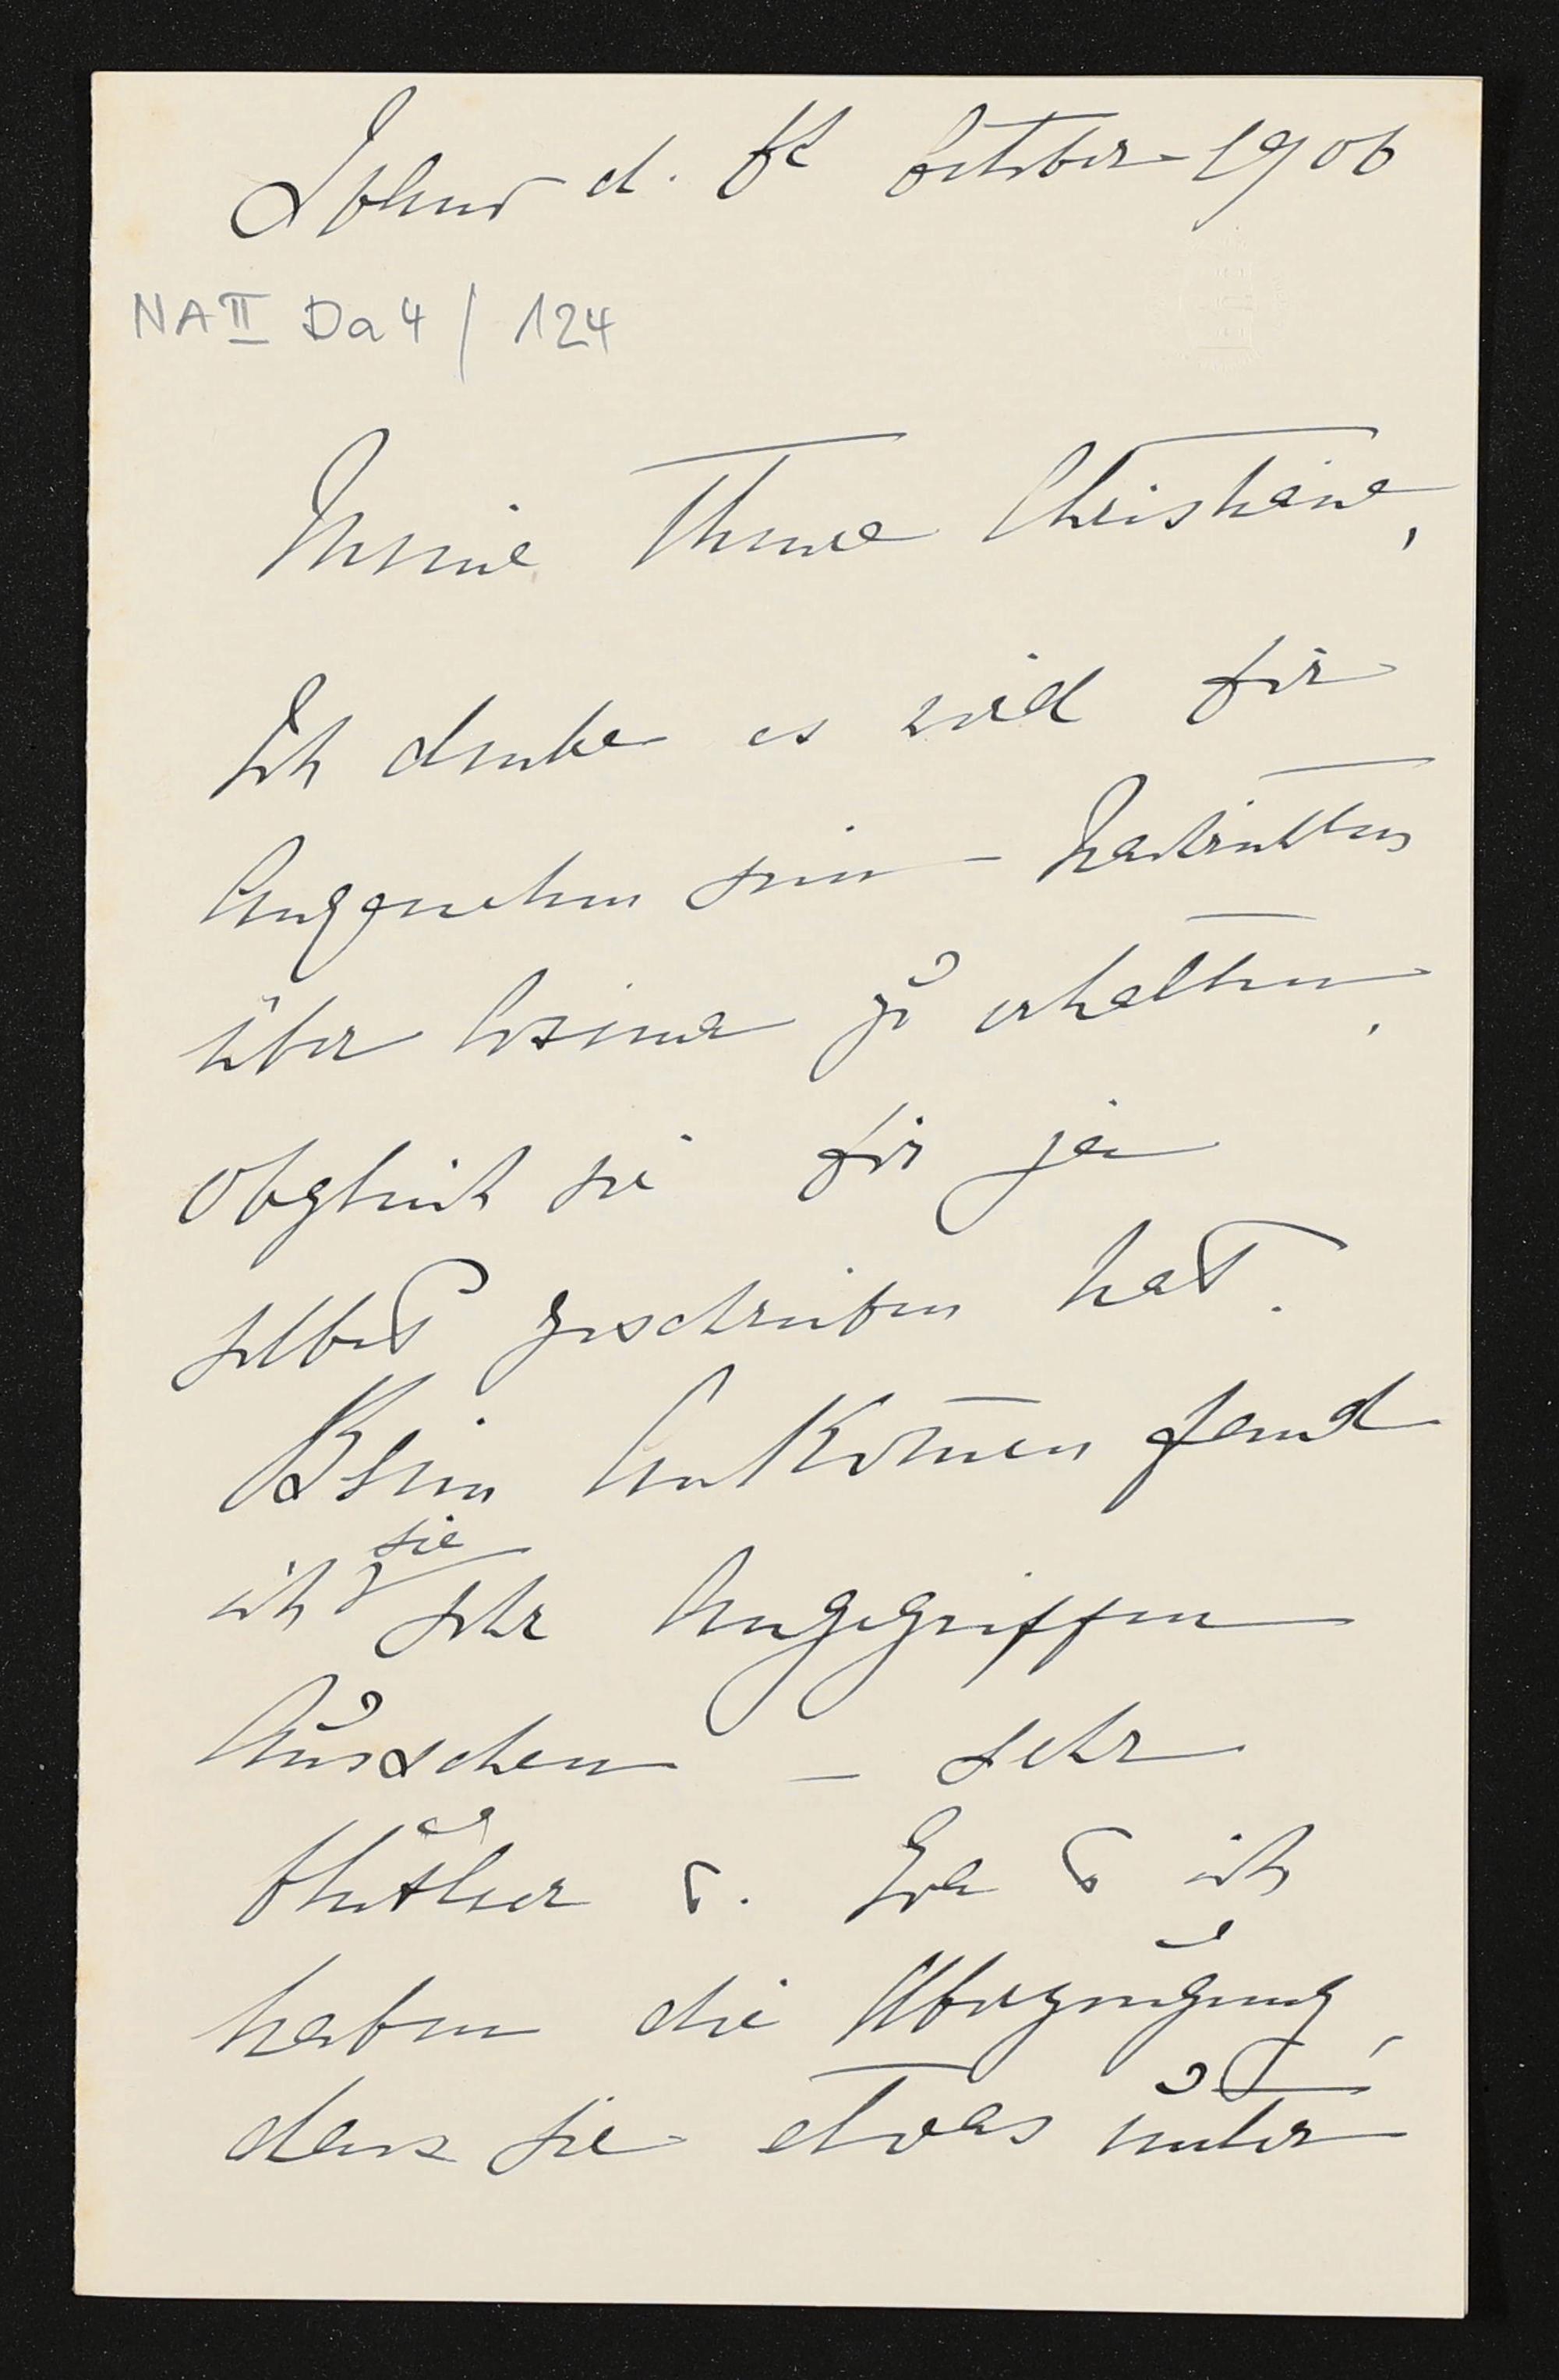 d. October 1906
NA II Da 4 / 124
Meine Theure Christiane,
Ich denke es wird dir
Angenehm sein – Nachrichten
über Cosima zu erhalten,
obgleich sie dir ja
selbst geschrieben hat.
Beim Ankom̅en fand
sie
ich sehr Angegriffen
Aussehen – sehr
blutleer u. Eva u ich
haben die Überzeugung,
dass sie etwas unter